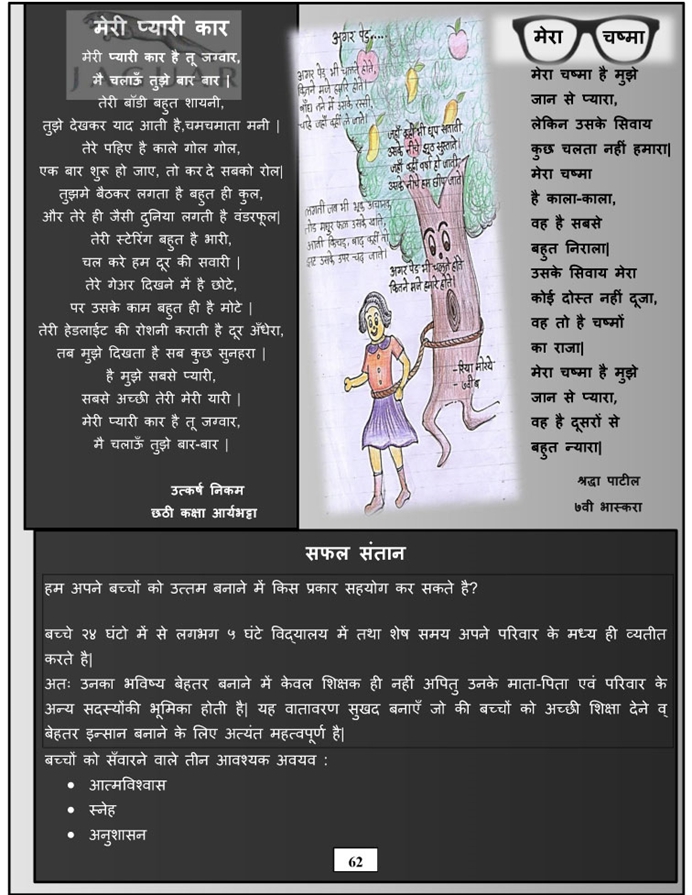 मेरी प्यारी कार
JAGUAR
मेरी प्यारी कार है तू जग्वार,
मै चलाऊँ तुझे बार बार |
तेरी बॉडी बहुत शायनी,
तुझे देखकर याद आती है,चमचमाता मनी |
तेरे पहिए है काले गोल गोल,
एक बार शुरू हो जाए, तो कर दे सबको रोल|
तुझमे बैठकर लगता है बहुत ही कुल,
और तेरे ही जैसी दुनिया लगती है वंडरफूल|
तेरी स्टेरिंग बहुत है भारी,
चल करे हम दूर की सवारी |
तेरे गेअर दिखने में है छोटे,
पर उसके काम बहुत ही है मोटे |
तेरी हेडलाईट की रोशनी कराती है दूर अँधेरा,
तब मुझे दिखता है सब कुछ सुनहरा |
है मुझे सबसे प्यारी,
सबसे अच्छी तेरी मेरी यारी |
मेरी प्यारी कार है तू जग्वार,
मै चलाऊँ तुझे बार-बार |
उत्कर्ष निकम
छठी कक्षा आर्यभट्टा
अगर पेड़....
अगर पेड़ भी चलते होते,
कितने मजे हमारे होते|
बाँध तने में उसके रस्सी,
चाहे जहाँ कहीं ले जाते|
जहाँ कहीं भी धूप सताती
उसके नीचे झट सुस्ताते|
जहाँ कहीं वर्षा हो जाती
उसके नीचे हम छीप जाते|
लगती जब भी भूख अचानक
तोड़ मधुर फल उसके खाते,
आती कीचड़, बाढ़ कहीं तो
झट उसके उपर चढ़ जाते|
अगर पेड़ भी चलते होते
कितने मजे हमारे होते|
-रिया मोरये
- ७वीब
मेरा चष्मा
मेरा चष्मा है मुझे
जान से प्यारा,
लेकिन उसके सिवाय
कुछ चलता नहीं हमारा|
मेरा चष्मा
है काला-काला,
वह है सबसे
बहुत निराला|
उसके सिवाय मेरा
कोई दोस्त नहीं दूजा,
वह तो है चष्मों
का राजा|
मेरा चष्मा है मुझे
जान से प्यारा,
वह है दूसरों से
बहुत न्यारा|
श्रद्धा पाटील
७वी भास्करा
सफल संतान
हम अपने बच्चों को उत्तम बनाने में किस प्रकार सहयोग कर सकते है?
बच्चे २४ घंटो में से लगभग ५ घंटे विद्यालय में तथा शेष समय अपने परिवार के मध्य ही व्यतीत
करते है|
अतः उनका भविष्य बेहतर बनाने में केवल शिक्षक ही नहीं अपितु उनके माता-पिता एवं परिवार के
अन्य सदस्योंकी भूमिका होती है| यह वातावरण सुखद बनाएँ जो की बच्चों को अच्छी शिक्षा देने व्
बेहतर इन्सान बनाने के लिए अत्यंत महत्वपूर्ण है|
बच्चों को सँवारने वाले तीन आवश्यक अवयव :
• आत्मविश्वास
• स्नेह
• अनुशासन
62